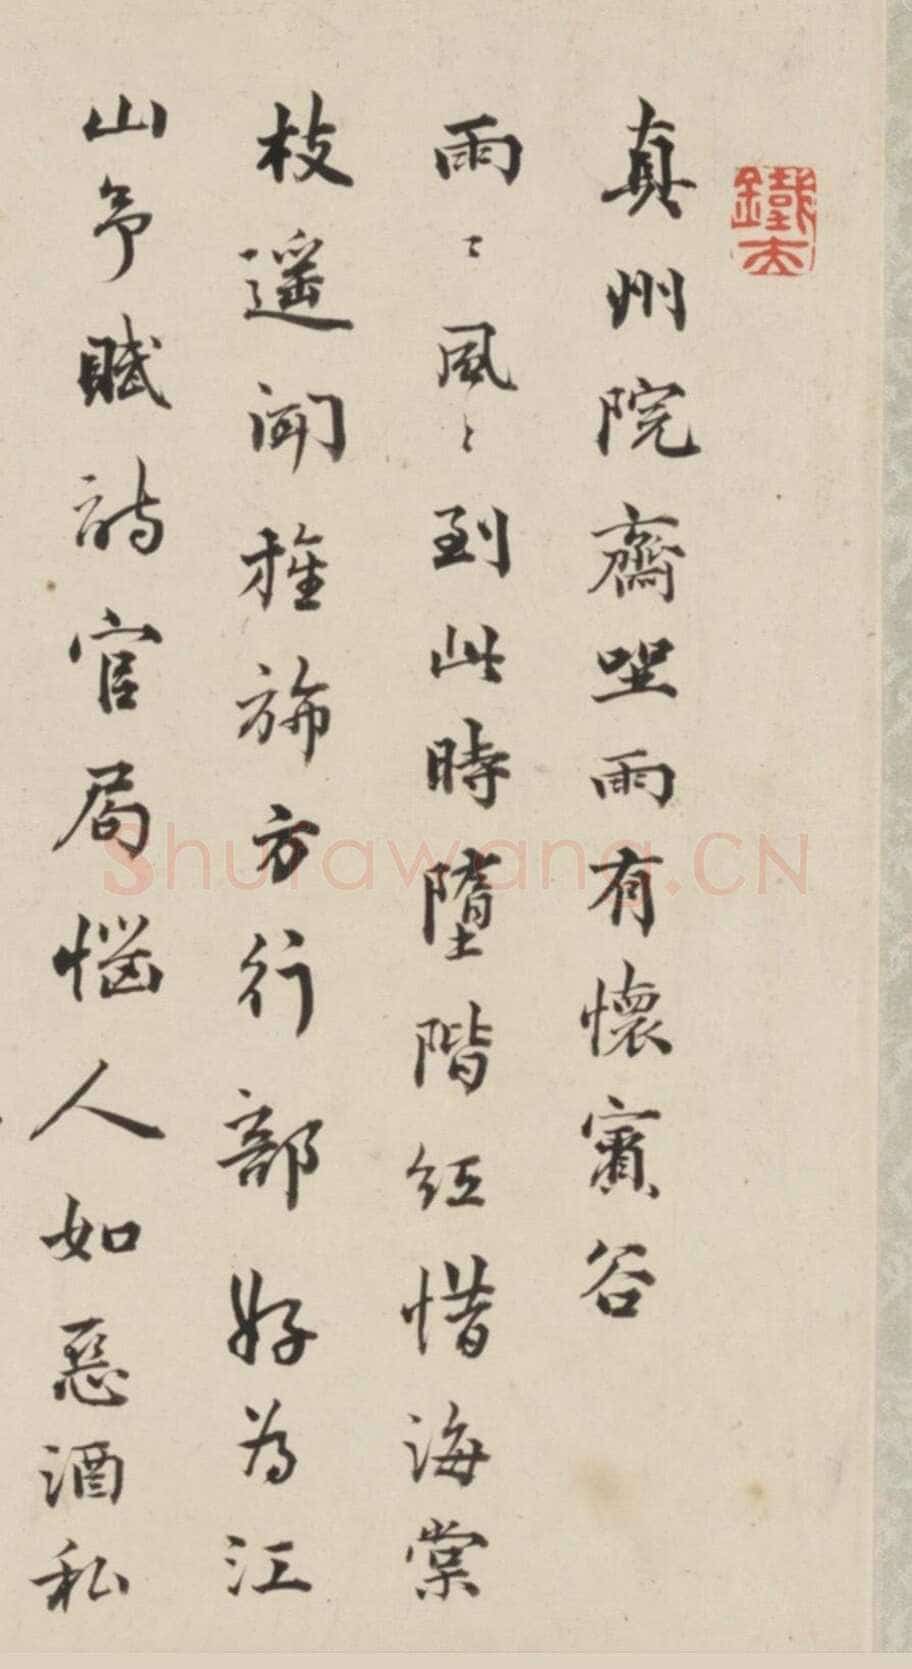 真州院齋坐雨有懷賓谷
雨〻風〻到此時墮階紅惜海棠
枝遥聞旌斾方行部好為江
山争賦詩官局惱人如惡酒私
鐵夫
Shufawang.CN